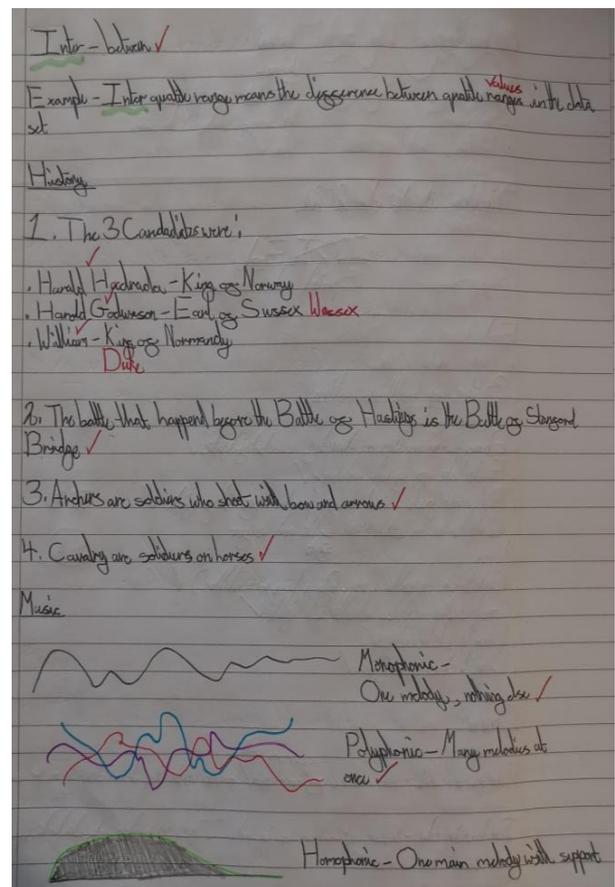 Inter - between
values
Example - Inter quatile range means the difference between quatile ranges in the data
set
History
1. The 3 Candadides were:
. Harald Hadrada - King of Norway
. Harold Godwinson - Earl of Sussex Wessex
. William - King of Normandy
Duke
2. The battle that happend before the Battle of Hastings is the Battle of Stanford
Bridge
3. Archers are soldiers who shoot with bow and arrows
4. Cavalry are soldiers on horses
Music
Monophonic -
One melody, nothing else
Polyphonic - Many melodies at
once
Homophonic - One main melody with support